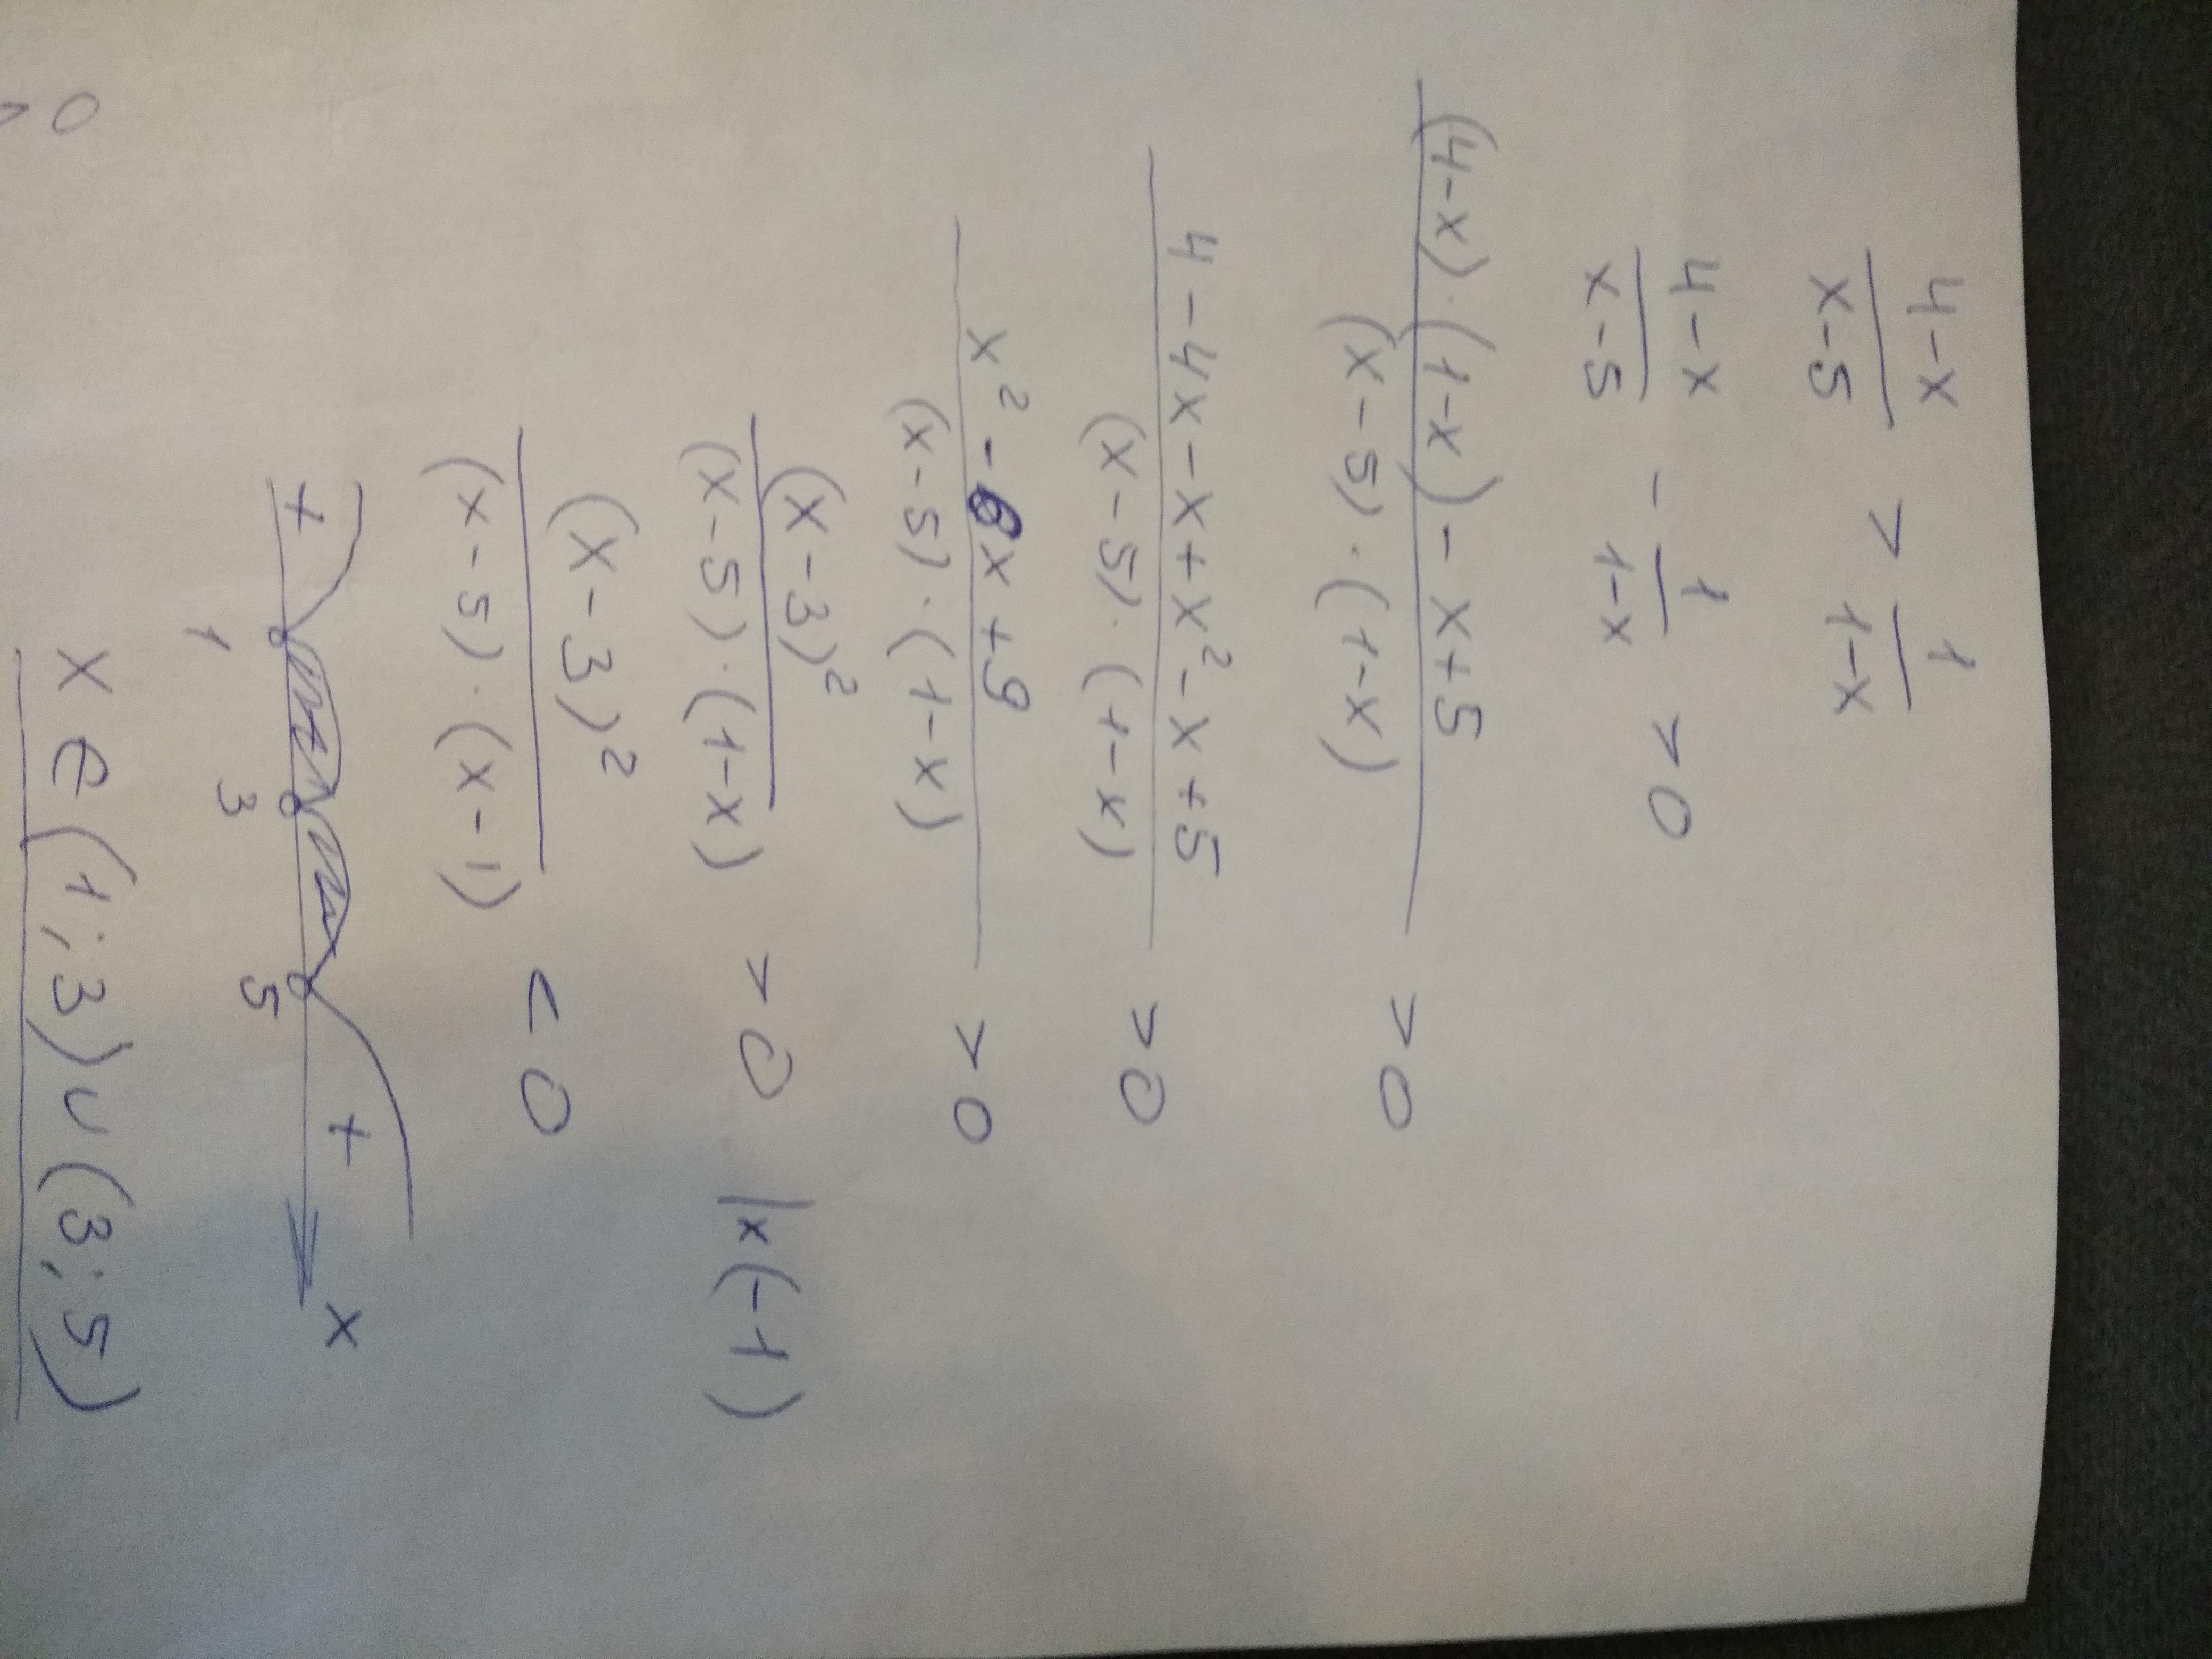 (4-x)/(x-5) > 1/(1-x)
(4-x)/(x-5) - 1/(1-x) > 0
((4-x)·(1-x)-x+5)/((x-5)·(1-x)) > 0
(4-4x-x+x²-x+5)/((x-5)·(1-x)) > 0
(x²-6x+9)/((x-5)·(1-x)) > 0
(x-3)²/((x-5)·(1-x)) > 0 |x(-1)
(x-3)²/((x-5)·(x-1)) < 0
+ - - + x
1 3 5
x ∈ (1;3)∪(3;5)